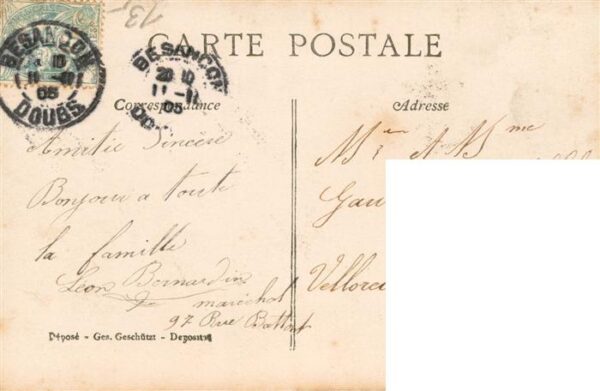 13,-
CARTE POSTALE
BESANÇON
DOUBS
BESANCON
20 10
11 - 11
05
Correspondance
Adresse
Amitié Sincère
Bonjour a toute
la famille
Léon Bernardin
maréchal
97 Rue Battant
Mr et Mme
Gau
Vellorei
Déposé - Ges. Geschützt - Deposited